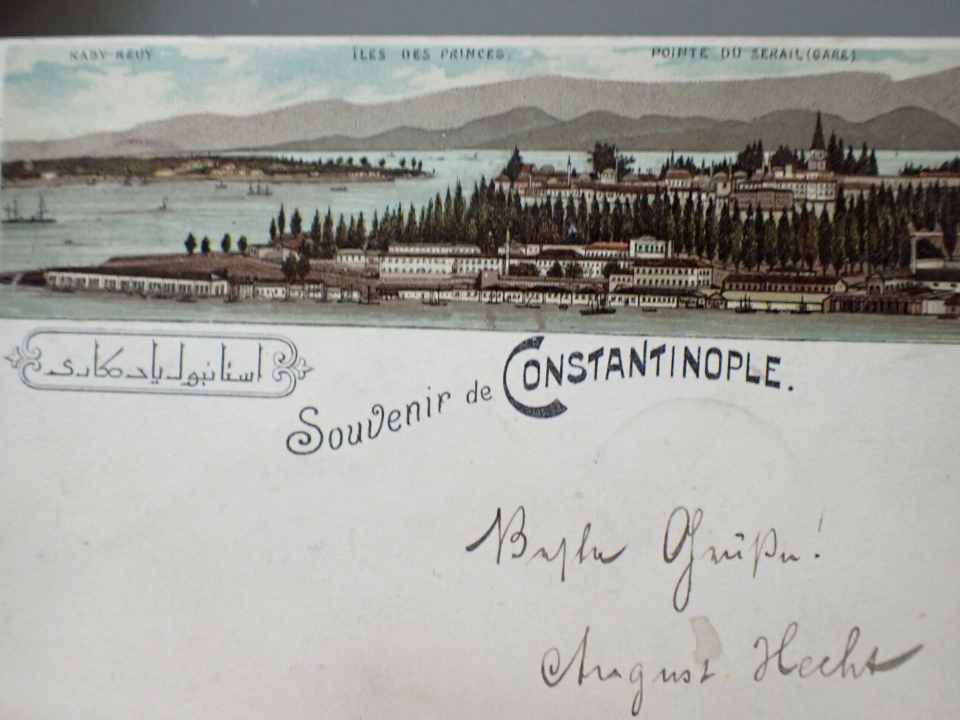 KADY-KEUY
ÎLES DES PRINCES.
POINTE DU SERAIL (GARE)
استانبول يادكاری
Souvenir de CONSTANTINOPLE.
Beste Grüße!
August Hecht